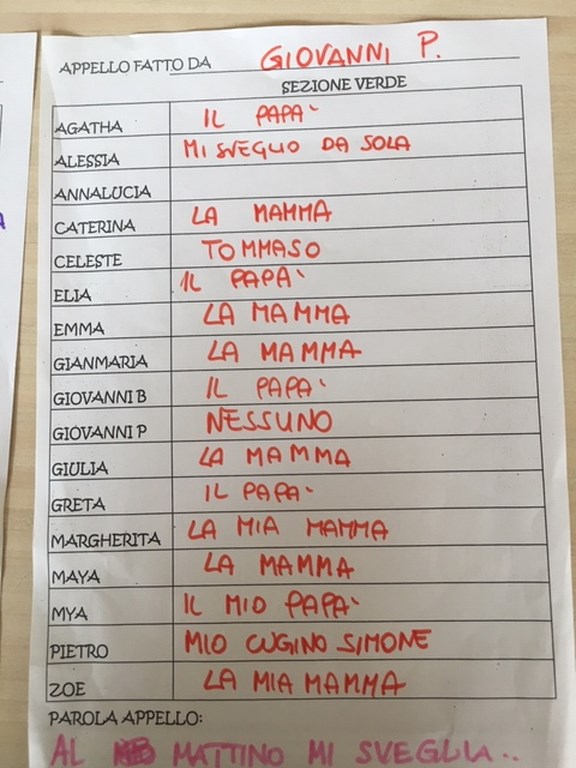 APPELLO FATTO DA GIOVANNI P.
SEZIONE VERDE
AGATHA IL PAPA'
ALESSIA MI SVEGLIO DA SOLA
ANNALUCIA
CATERINA LA MAMMA
CELESTE TOMMASO
ELIA IL PAPA'
EMMA LA MAMMA
GIANMARIA LA MAMMA
GIOVANNI B IL PAPA'
GIOVANNI P NESSUNO
GIULIA LA MAMMA
GRETA IL PAPA'
MARGHERITA LA MIA MAMMA
MAYA LA MAMMA
MYA IL MIO PAPA'
PIETRO MIO CUGINO SIMONE
ZOE LA MIA MAMMA
PAROLA APPELLO:
AL MATTINO MI SVEGLIA..